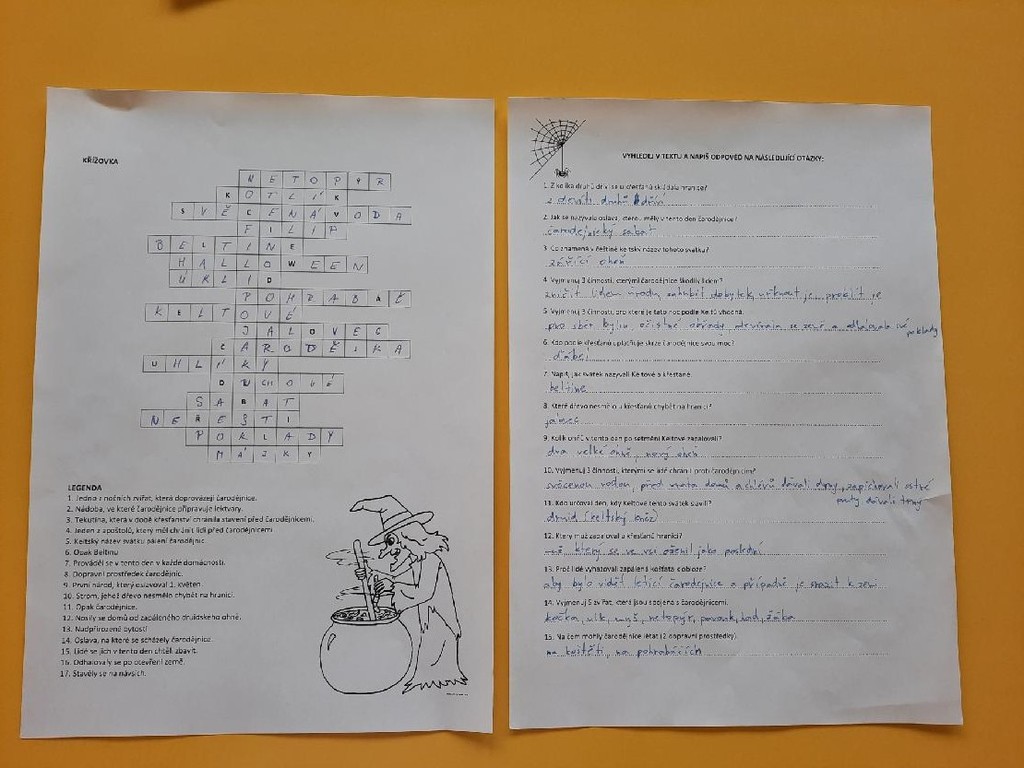 KŘÍŽOVKA
NETOPÝR
KOTLÍK
SVĚCENÁ VODA
FILIP
BELTINE
HALLOWEEN
ÚKLID
POHRABÁČ
KELTOVÉ
JALOVEC
ČARODĚJKA
UHLÍKY
DUCHOVÉ
SABAT
NEŘESTI
POKLADY
MÁJKY
LEGENDA
1. Jedno z nočních zvířat, která doprovázejí čarodějnice.
2. Nádoba, ve které čarodějnice připravuje lektvary.
3. Tekutina, která v době křesťanství chránila stavení před čarodějnicemi.
4. Jeden z apoštolů, který měl chránit lidi před čarodějnicemi
5. Keltský název svátku pálení čarodějnic
6. Opak Beltinu
7. Prováděl se v tento den v každé domácnosti.
8. Dopravní prostředek čarodějnic.
9. První národ, který oslavoval 1. květen.
10. Strom, jehož dřevo nesmělo chybět na hranici.
11. Opak čarodějnice.
12. Nosily se domů od zapáleného druidského ohně.
13. Nadpřirozené bytosti
14. Oslava, na které se scházely čarodějnice.
15. Lidé se jich v tento den chtěli zbavit.
16. Odhalovaly se po otevření země.
17. Stavěly se na návsích.
VYHLEDEJ V TEXTU A NAPIŠ ODPOVĚĎ NA NÁSLEDUJÍCÍ OTÁZKY:
1. Z kolika druhů dříví se u křesťanů skládala hranice?
z devíti druhů dříví
2. Jak se nazývala oslava, kterou měly v tento den čarodějnice?
čarodejnický sabat
3. Co znamená v češtině keltský název tohoto svátku?
zářící oheň
4. Vyjmenuj 3 činnosti, kterými čarodějnice škodily lidem?
zničit lidem úrodu, zahubit dobytek, uřknout je, proklít je
5. Vyjmenuj 3 činnosti, pro které je tato noc podle Keltů vhodná.
pro sběr bylin, očistné obřady, otevírala se země a odhalovala své poklady
6. Kdo podle křesťanů uplatňuje skrze čarodějnice svou moc?
ďábel
7. Napiš, jak svátek nazývali Keltové a křesťané.
beltine
8. Které dřevo nesmělo u křesťanů chybět na hranici?
jalovec
9. Kolik ohňů v tento den po setmění Keltové zapalovali?
dva velké ohně, nový oheň
10. Vyjmenuj 3 činnosti, kterými se lidé chránili proti čarodějnicím?
svěcenou vodou, před vrata domů a chlévů dávali drny, zapichovali ostré
pruty, dávali trny
11. Kdo určoval den, kdy Keltové tento svátek slavili?
druid (keltský kněz)
12. Který muž zapaloval u křesťanů hranici?
muž který se ve vsi oženil jako poslední
13. Proč lidé vyhazovali zapálená košťata do vzduchu?
aby bylo vidět letící čarodejnice a případně je srazit k zemi
14. Vyjmenuj 5 zvířat, které jsou spojena s čarodějnicemi.
kočka, vlk, myš, netopýr, pavouk, had, žába
15. Na čem mohly čarodějnice létat (2 dopravní prostředky).
na koštěti, na pohrabáčích